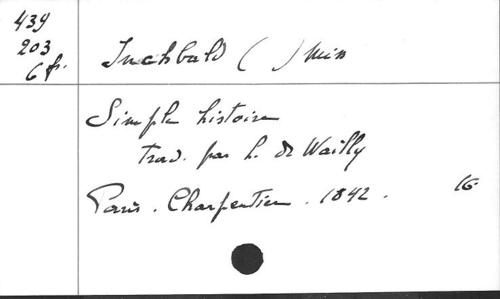 439
203
6 fr.
Inchbald ( ) Miss
Simple histoire
trad. par L. de Wailly
Paris. Charpentier. 1842. 16°